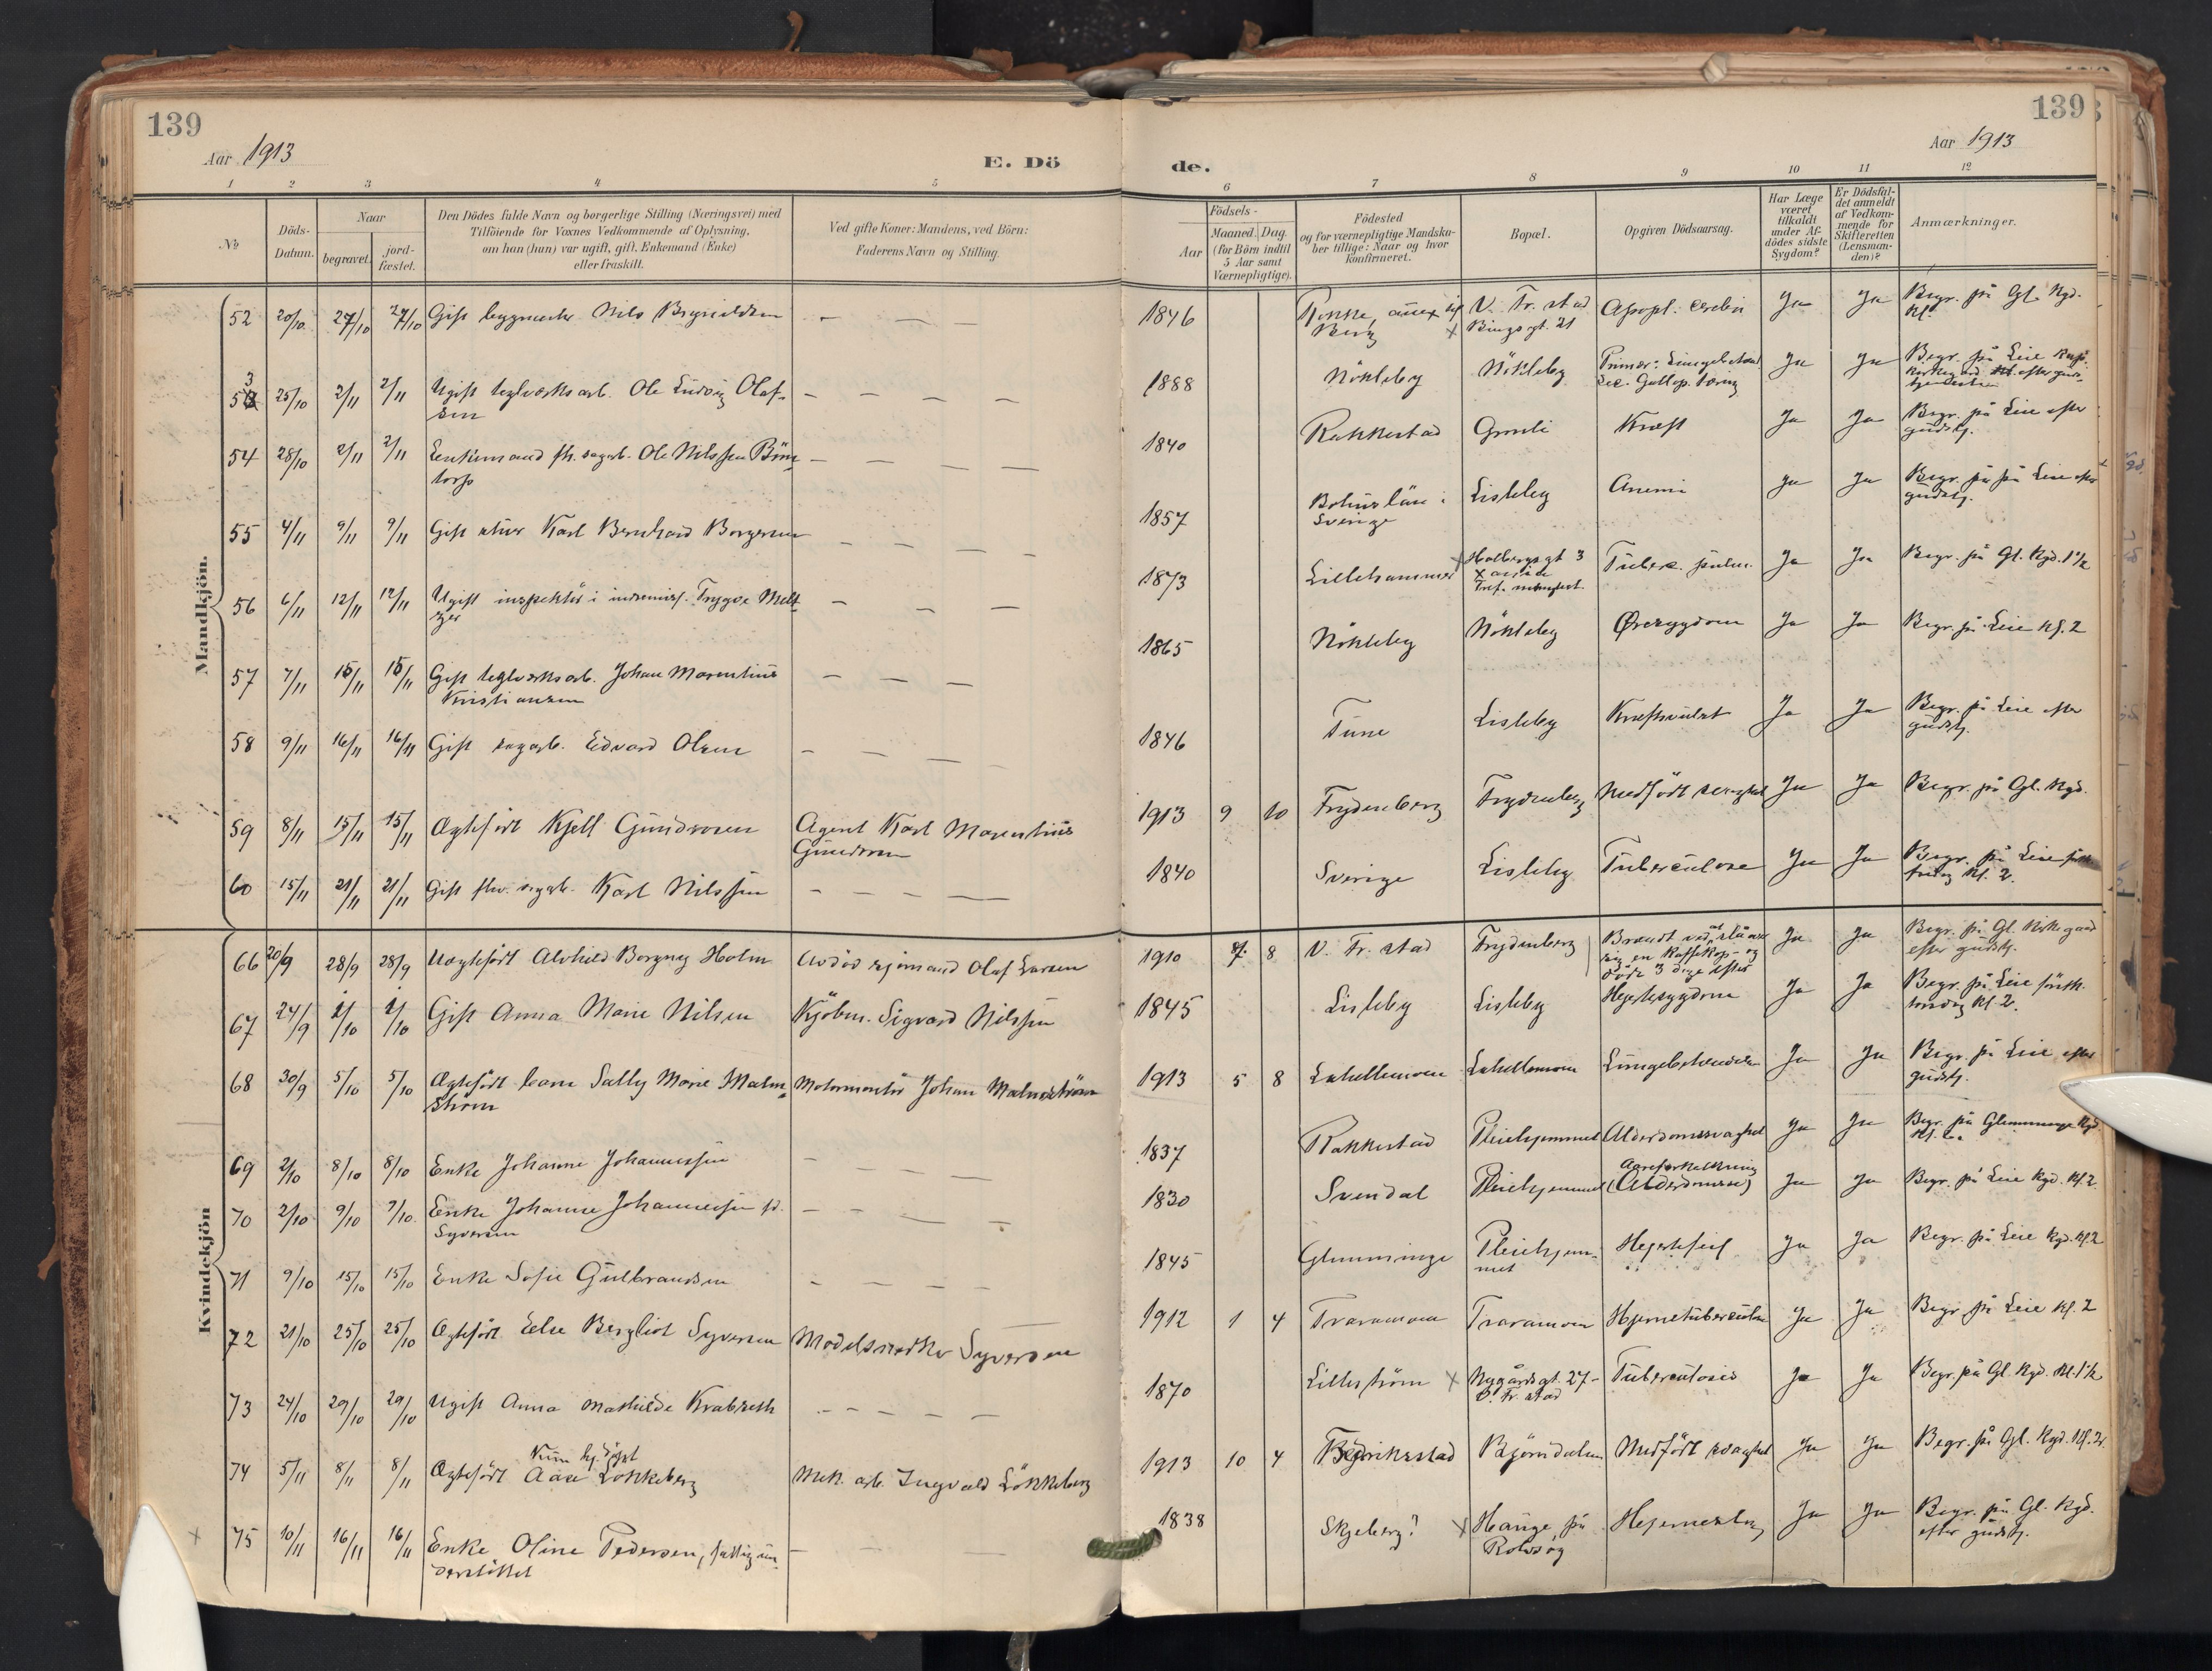 139
139
Aar 1913
E. Dö
de.
Aar 1913
1 2 3 4 5 6 7 8 9 10 11 12
No
Döds-
Datum.
Naar
begravet.
jord-
fæstet.
Den Dödes fulde Navn og borgerlige Stilling (Næringsvei) med
Tilföiende for Voxnes Vedkommende af Oplysning,
om han (hun) var ugift, gift, Enkemand (Enke)
eller fraskilt.
Ved gifte Koner: Mandens, ved Börn:
Faderens Navn og Stilling.
Födsels-
Aar
Maaned. Dag.
(for Börn indtil
5 Aar samt
Værnepligtige).
Födested
og for værnepligtige Mandska-
ber tillige: Naar og hvor
konfirmeret.
Bopæl.
Opgiven Dödsaarsag.
Har Læge
været
tilkaldt
under Af-
dödes sidste
Sygdom?
Er Dödsfal-
det anmeldt
af Vedkom-
mende for
Skifteretten
(Lensman-
den)?
Anmærkninger.
Mandkjön.
52 20/10 27/10 27/10 Gift bygmester Nils 1846 Berg V. Fr. stad
Bings gt. 21 Apopl. cerebri Ja Ja Begr. på Gl. Kgd.
53 25/10 2/11 2/11 Ugift teglverksarb. Ole Ludvig Olaf-
sen 1888 Nökleby Nökleby Ja Ja Begr. på Leie
54 28/10 2/11 2/11 Enkemand fh. sagarb. Ole Nilssen
torp 1840 Rakkestad Kræft Ja Ja Begr. på Leie efter
gudstj.
55 4/11 9/11 9/11 Gift Karl Bernhard Borgersen 1857 Bohuslän i
Sverige Lisleby Anemi Ja Ja Begr. på på Leie efter
gudstj.
56 6/11 12/11 12/11 Ugift inspektör i indremisj. Trygve Melt
zer 1873 Lillehammer Holbergs gt 3 Tuberc. pulm. Ja Ja Begr. på Gl. Kgd. 1 1/2
57 7/11 15/11 15/11 Gift teglverksarb. Johan Marentius
Kristiansen 1865 Nökleby Nökleby Øresygdom Ja Ja Begr. på Leie kl. 2
58 9/11 16/11 16/11 Gift sagarb. Edvard Olsen 1846 Tune Lisleby Kræftsvulst Ja Ja Begr. på Leie efter
gudstj.
59 8/11 15/11 15/11 Ægtefödt Kjell Gundersen Agent Karl Marentius
Gundersen 1913 9 10 Frydenberg Frydenberg Medfödt svaghed Ja Ja Begr. på Gl. Kgd.
60 15/11 21/11 21/11 Gift fhv. sagarb. Karl Nilssen 1840 Sverige Lisleby Tuberculose Ja Ja Begr. på Leie
fredag kl. 2.
Kvindekjön
66 20/9 28/9 28/9 Uægtefödt Alvhild Borgny Holm Avdöd sjömand Olaf Larsen 1910 8 V. Fr. stad Frydenberg Brændt ved at slå over
sig en kaffekop og
döde 3 dage efter Ja Ja Begr. på Gl. Kirkegaard
efter gudstj.
67 24/9 1/10 1/10 Gift Anna Marie Nilsen Kjöbm. Sigvard Nilssen 1845 Lisleby Lisleby Hjertesygdom Ja Ja Begr. på Leie
kl. 2.
68 30/9 5/10 5/10 Ægtefödt barn Sally Marie Malm-
ström Motormontör Johan Malmström 1913 5 8 Lahellemoen Lahellemoen Lungebetændelse Ja Ja Begr. på Leie efter
gudstj.
69 2/10 8/10 8/10 Enke Johanne Johannessen 1837 Rakkestad Pleiehjemmet Alderdomssvaghed Ja Ja Begr. på Glemminge Kgd.
kl. 2.
70 2/10 9/10 9/10 Enke Johanne Johannessen f.
Syversen 1830 Svendal Pleiehjemmet Aareforkalkning
Ja Ja Begr. på Leie Kgd. kl. 2.
71 9/10 15/10 15/10 Enke Sofie Gulbrandsen 1845 Glemminge Pleiehjem-
met Hjertefeil Ja Ja Begr. på Leie Kgd. kl. 2
72 21/10 25/10 25/10 Ægtefödt Else Bergliot Syversen Modelsnedker Syversen 1912 1 4 Traramoen Traramoen Hjernetuberculose Ja Ja Begr på Leie kl. 2
73 24/10 29/10 29/10 Ugift Anna Mathilde Krabseth 1870 Lilleström Nygårdsgt. 27-
Fr. stad Tuberculosis Ja Ja Begr. på Gl. Kgd. kl. 1 1/2
74 5/11 8/11 8/11 Ægtefödt Kun hj. döpt
Aase Lökkeberg Mek. arb. Ingvald Lökkeberg 1913 10 4 Fredrikstad Bjørndalen Medfödt svaghed Ja Ja Begr. på Gl. Kgd. kl. 2.
75 10/11 16/11 16/11 Enke Oline Pedersen, fattigun-
derstöttet 1838 Skjeberg? Hauge på
Rolvsøy Ja Ja Begr. på Gl. Kgd.
efter gudstj.